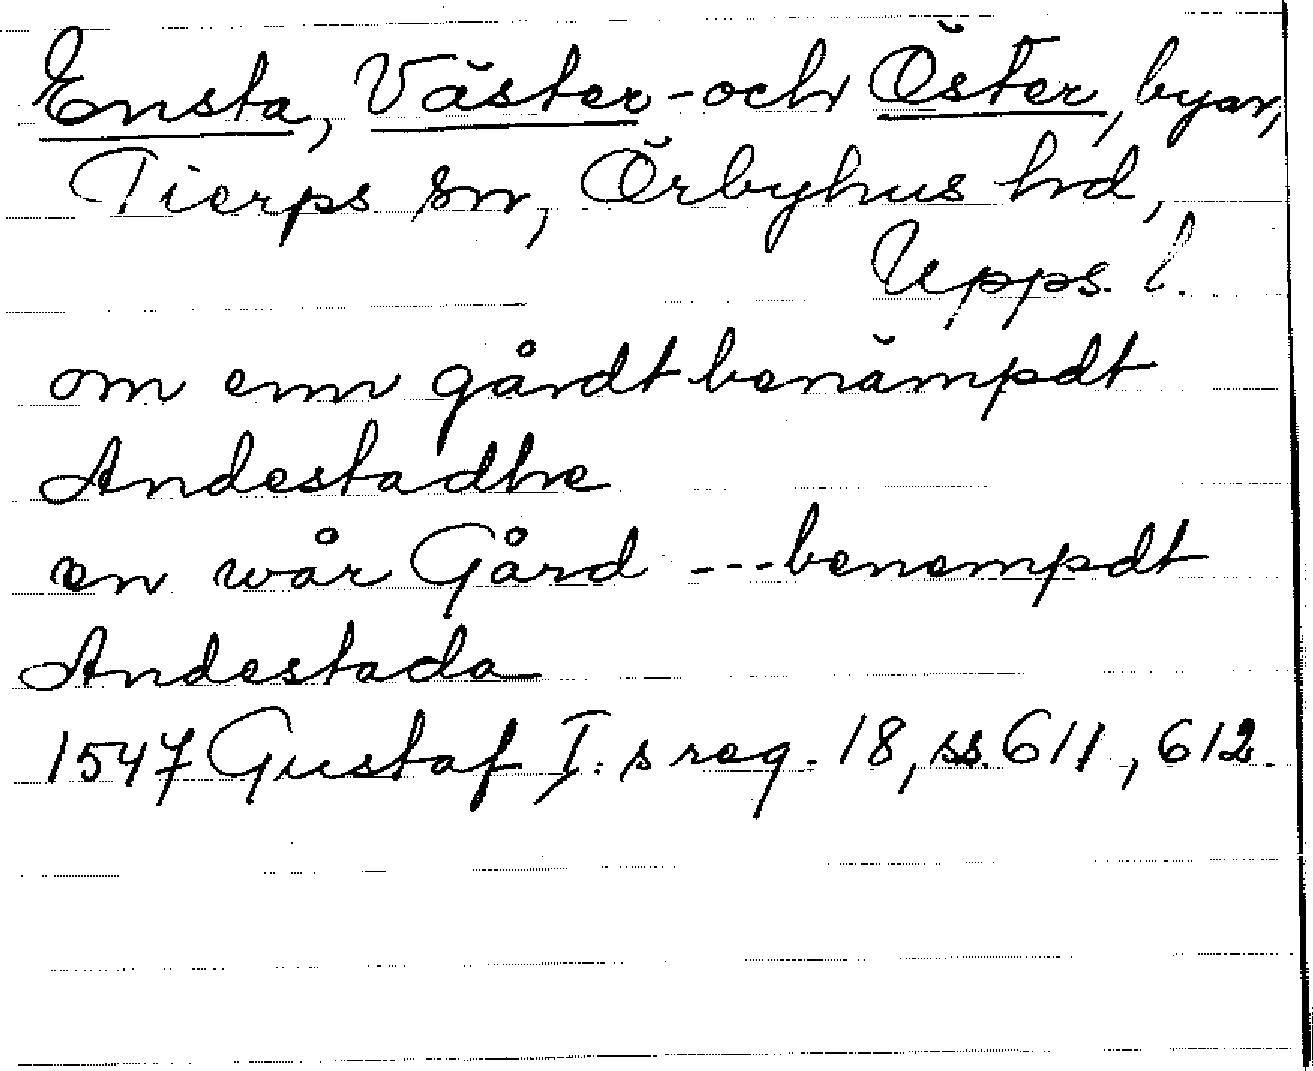 Ensta, Väster- och Öster, byar,
Tierps sn, Örbyhus hd,
Upps. l.
om enn gårdt benämpdt
Andestadhe
en wår Gård ---benempdt
Andestada
1547 Gustaf I:s reg. 18, ss. 611, 612.